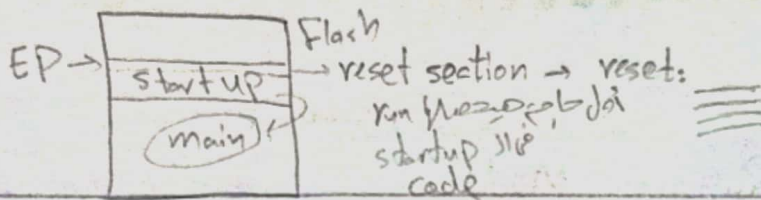 Flash
EP → startup → reset section → reset:
أول حاجة هيحصلها run
main
فى ال startup
code